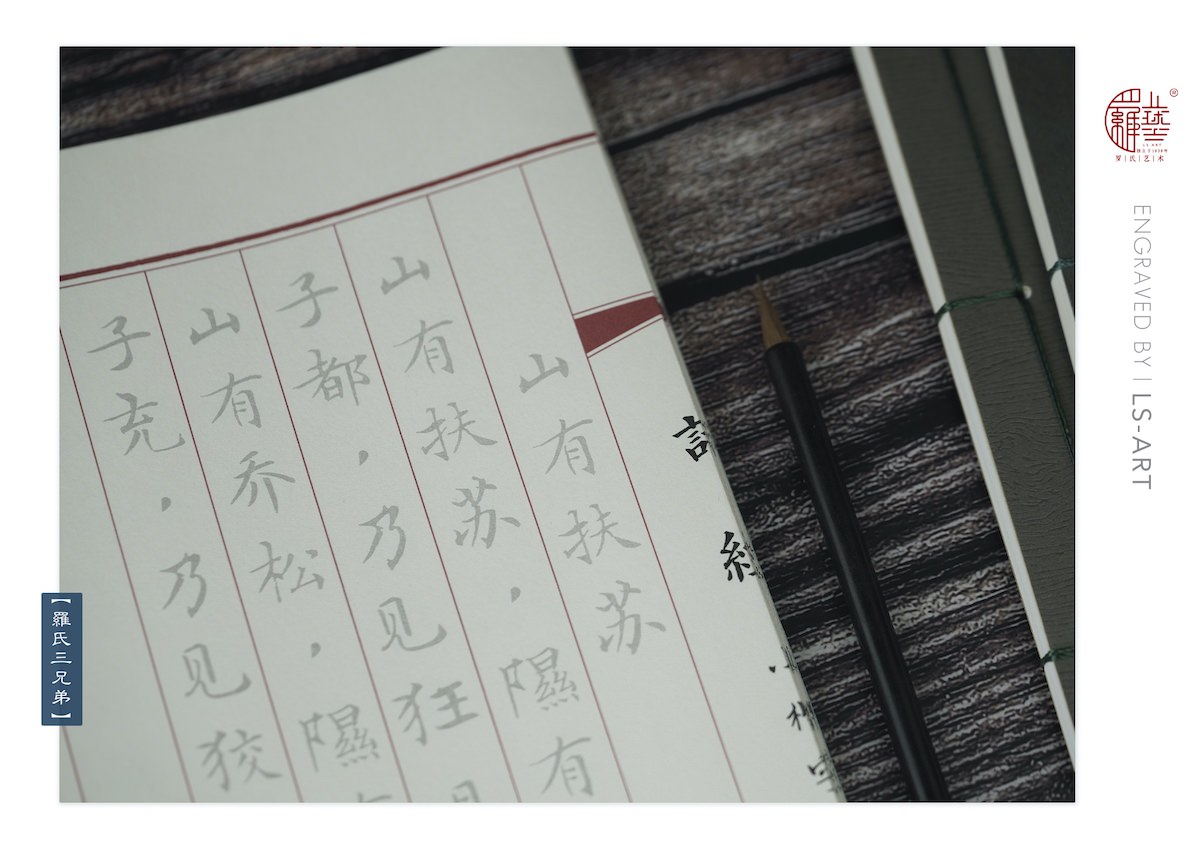 山有扶苏
山有扶苏，隰有
子都，乃见狂
山有乔松，隰
子充，乃见狡
【羅氏三兄弟】
罗|氏|艺|术
ENGRAVED BY | LS-ART